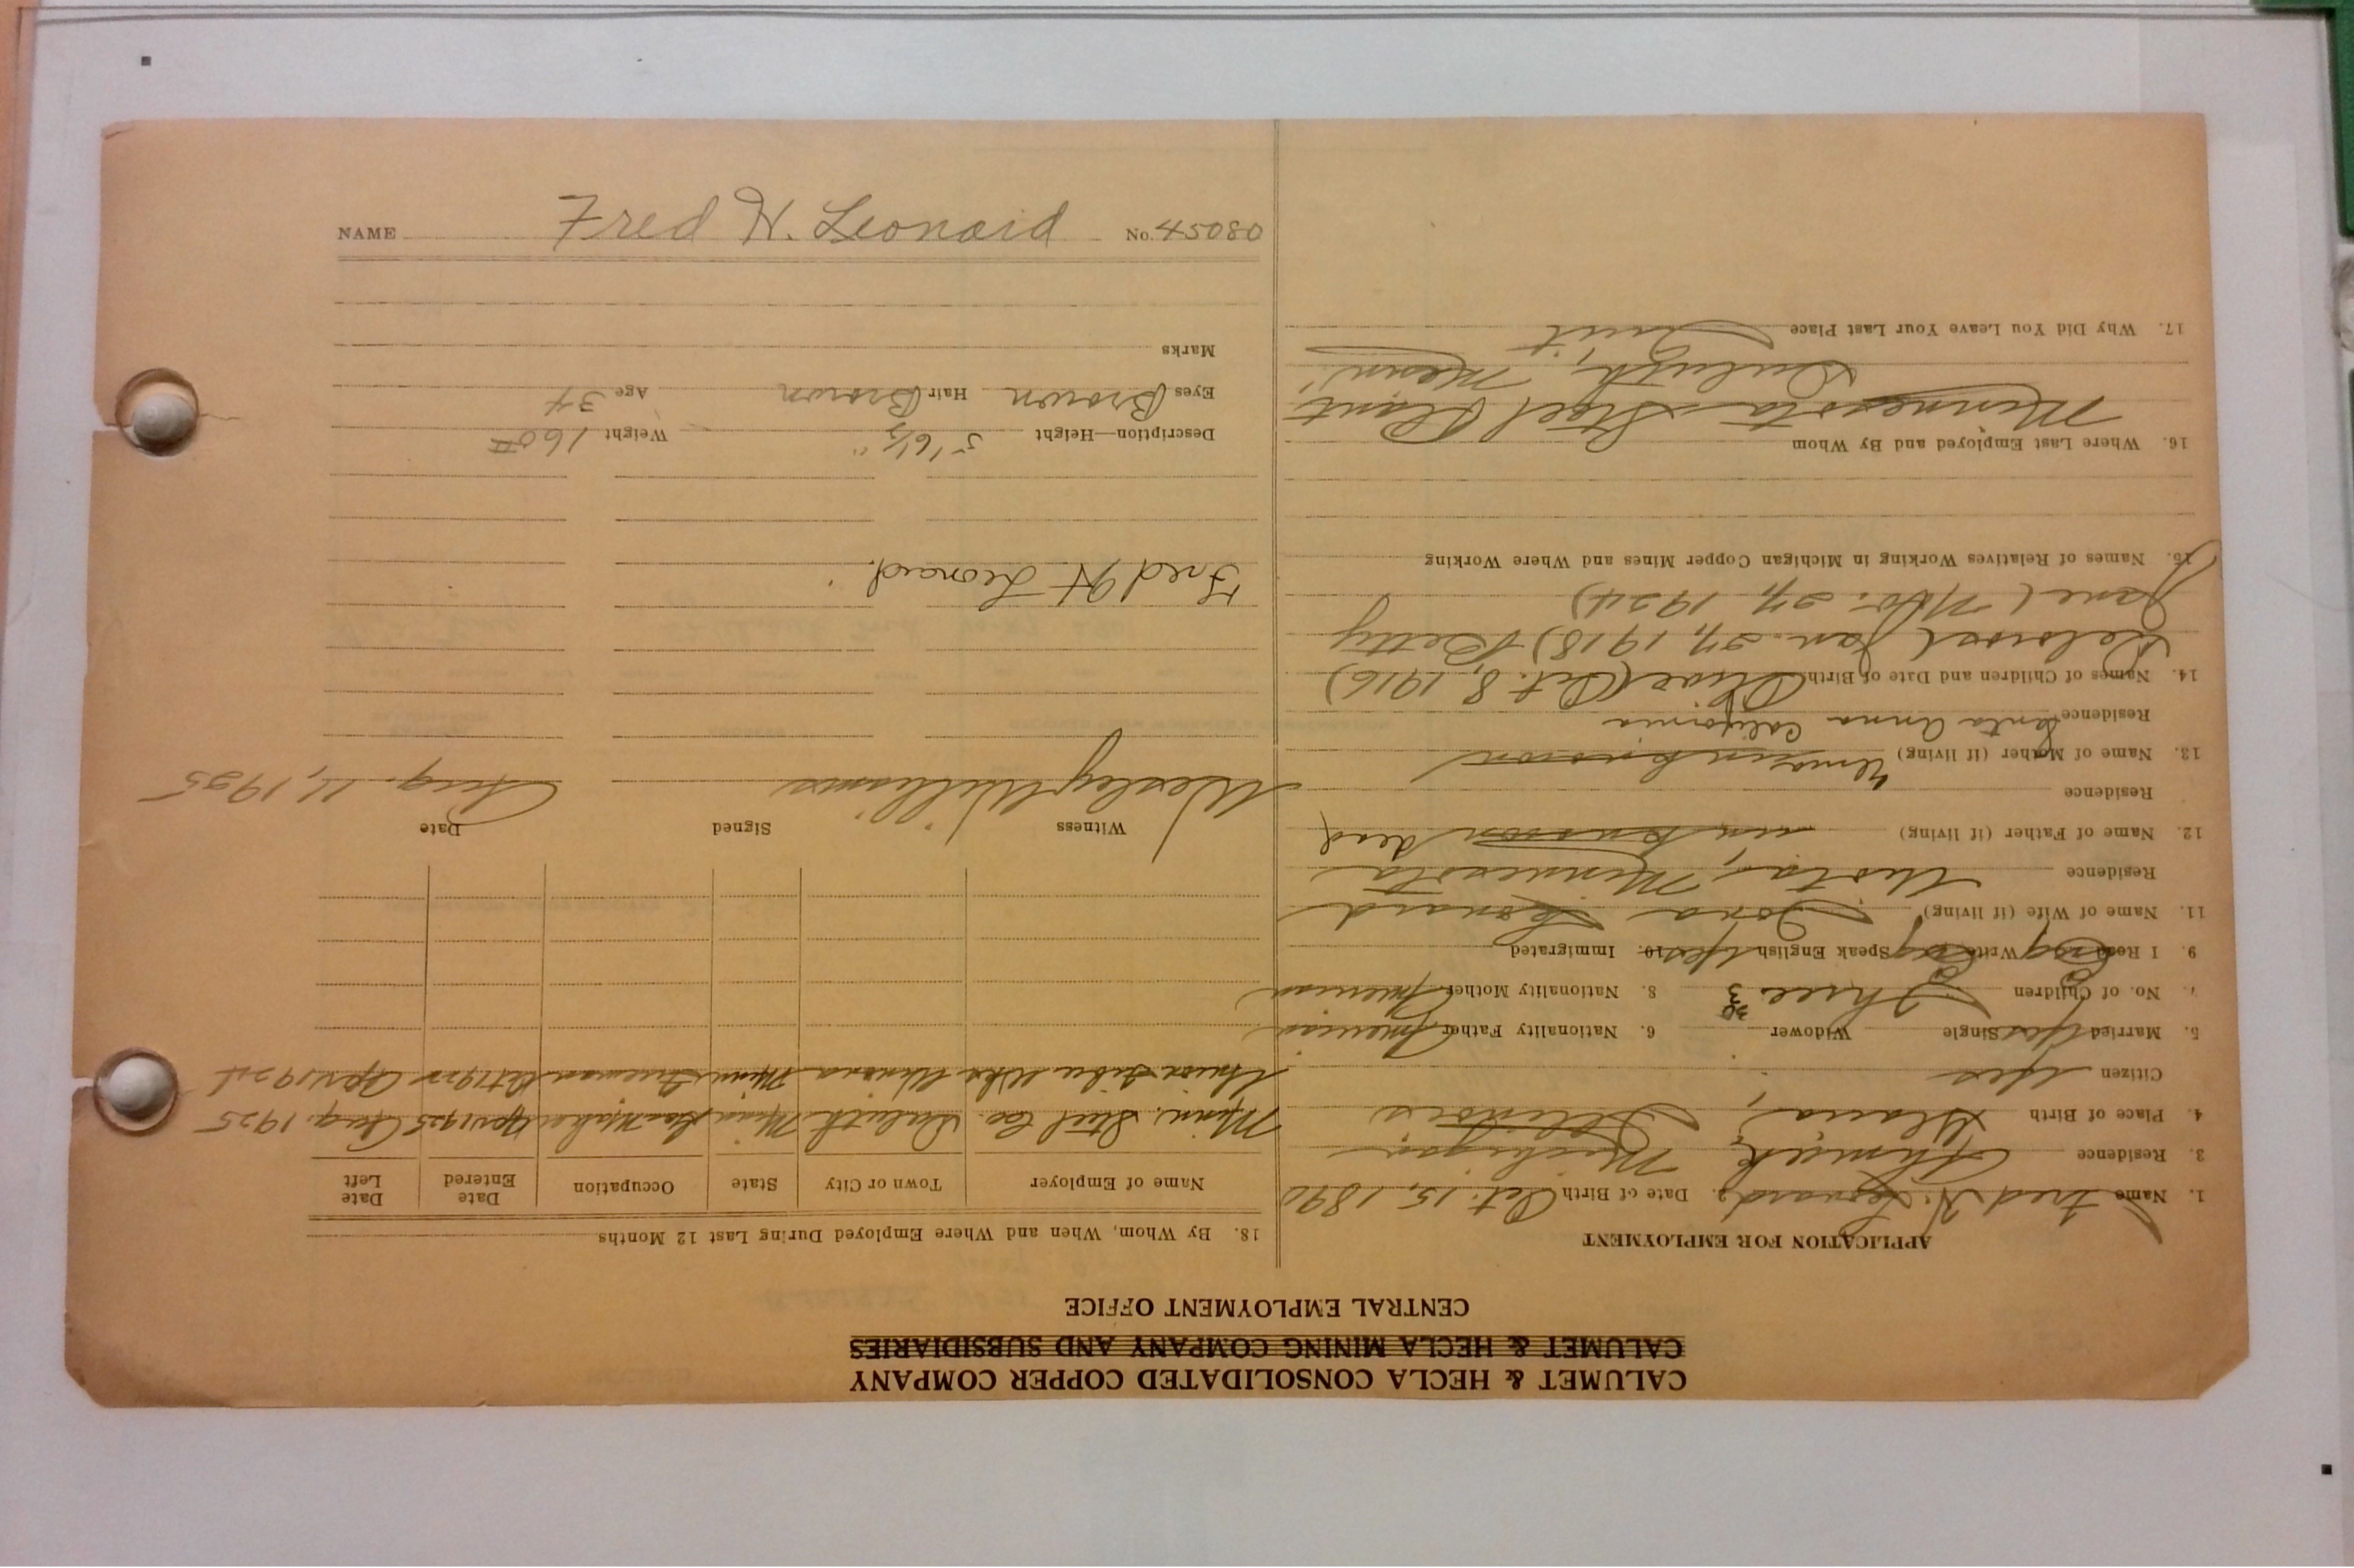 CALUMET & HECLA CONSOLIDATED COPPER COMPANY
CALUMET & HECLA MINING COMPANY AND SUBSIDIARIES
CENTRAL EMPLOYMENT OFFICE
APPLICATION FOR EMPLOYMENT
1. Name Fred H. Leonard 2. Date of Birth Oct. 15, 1890
3. Residence Ahmeek, Michigan
4. Place of Birth Illinois
Citizen Yes
5. Married Yes Single Widower 6. Nationality Father American
7. No. of Children Three 3 8. Nationality Mother American
9. I Read Eng Write Eng Speak English Yes 10. Immigrated
11. Name of Wife (if living) Leonard
Residence Minnesota
12. Name of Father (if living) unknown dead
Residence
13. Name of Mother (if living) unknown
Residence Santa Anna California
14. Names of Children and Date of Birth (Oct. 8, 1916)
(Jan. 27, 1918) Betty
Jane (Nov. 27, 1924)
15. Names of Relatives Working in Michigan Copper Mines and Where Working
16. Where Last Employed and By Whom
Minnesota Steel Plant
Duluth, Minn.
17. Why Did You Leave Your Last Place Quit
18. By Whom, When and Where Employed During Last 12 Months
Name of Employer Town or City State Occupation Date Entered Date Left
Minn. Steel Co. Duluth Minn Apr 1925 Aug. 1925
Winona Minn Oct 1922 Apr. 1924
Witness Signed Date
Wesley Williams Aug. 11, 1925
Fred H Leonard.
Description—Height 5' 6½" Weight 160#
Eyes Brown Hair Brown Age 34
Marks
NAME Fred H. Leonard No. 45080